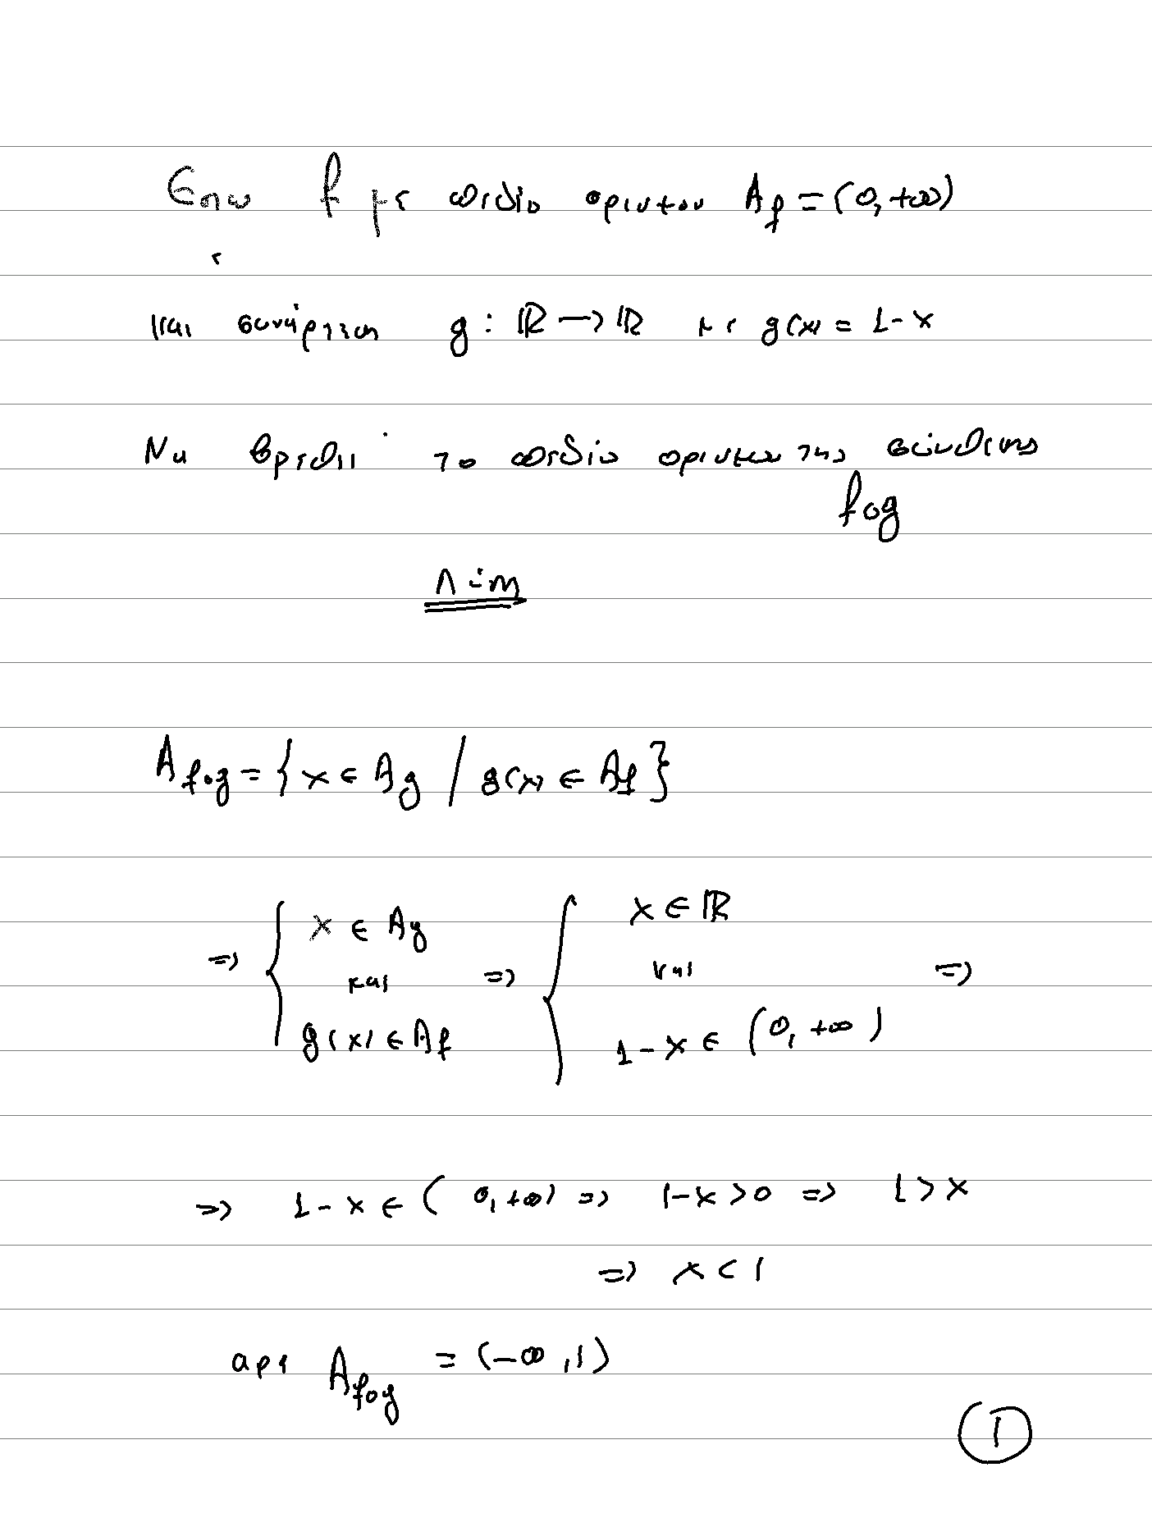 Εστω f με πεδίο ορισμού A_f = (0, +∞)
και συνάρτηση g : ℝ → ℝ με g(x) = 1-x
Να βρεθεί το πεδίο ορισμού της σύνθεσης
fog
Λύση
A_fog = { x ∈ A_g / g(x) ∈ A_f }
⇒ { x ∈ A_g και g(x) ∈ A_f ⇒ { x ∈ ℝ και 1-x ∈ (0, +∞) ⇒
⇒ 1-x ∈ (0, +∞) ⇒ 1-x > 0 ⇒ 1 > x
⇒ x < 1
αρα A_fog = (-∞, 1)
1